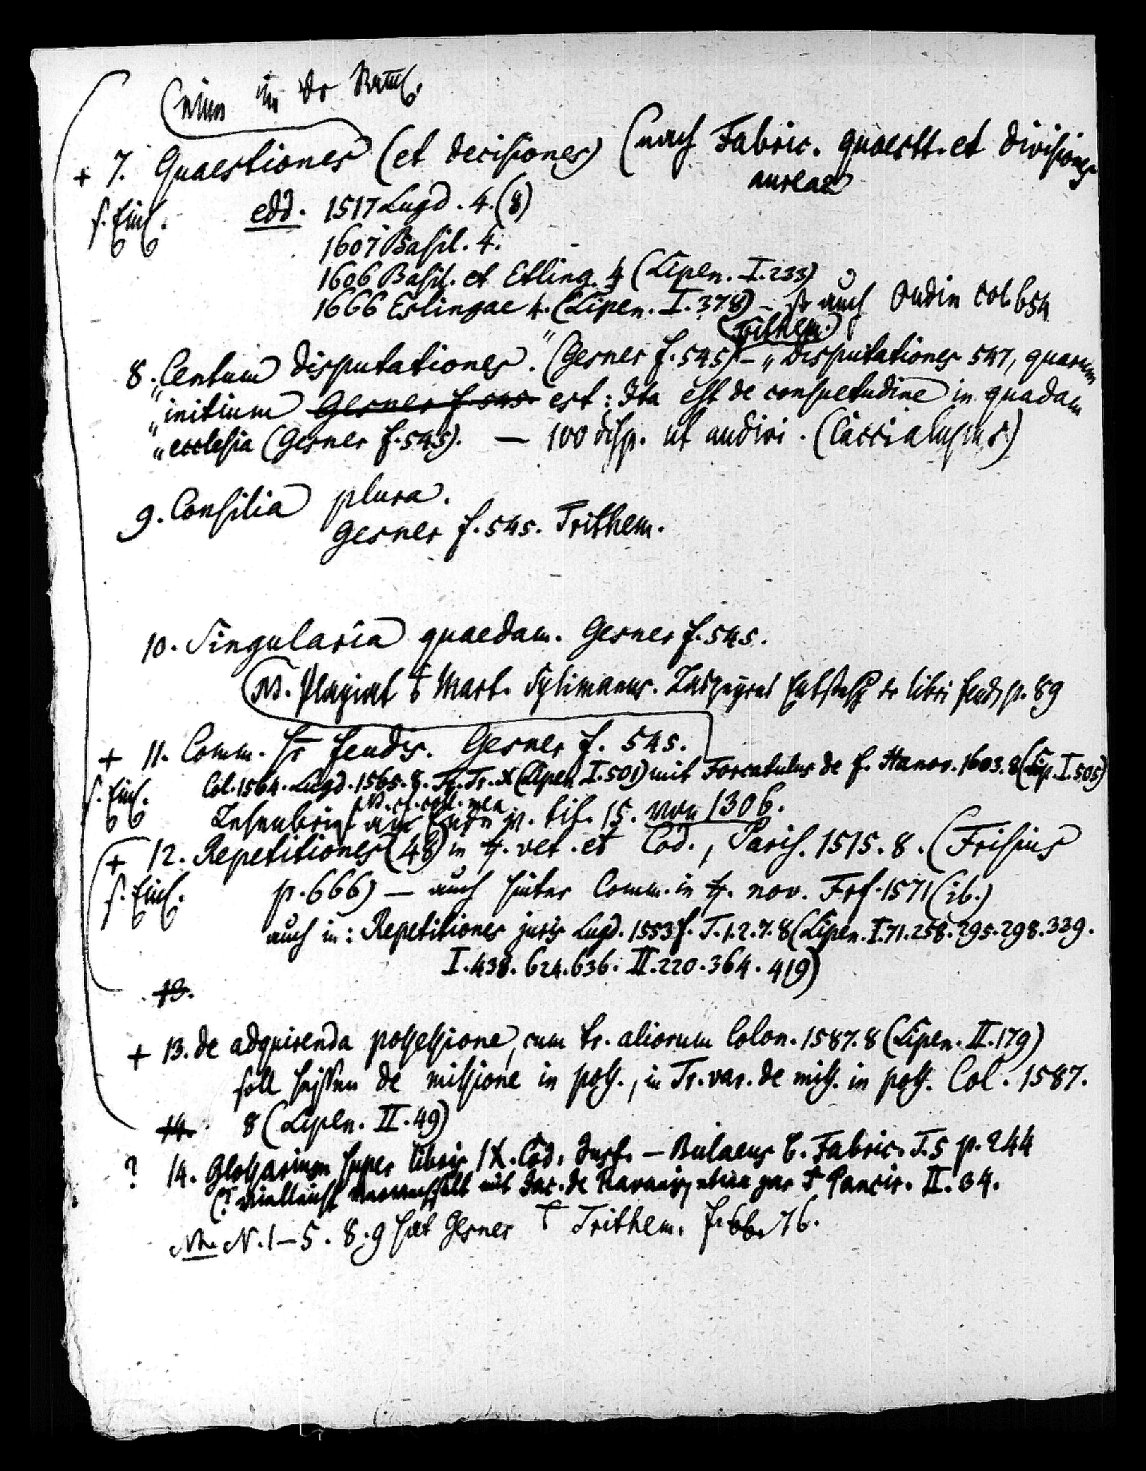 + 7. Quaestiones (et decisiones) (nach Fabric. quaestt. et divisiones
aureae
s. Einl. edd. 1517 Lugd. 4. (8)
1607 Basil. 4.
1606 Basil. et Etling. 4 (Lipen. I. 233)
1666 Eslingae 4. (Lipen. I. 378) – so auch Oudin col 654
(Trithem.)
8. Centum disputationes." (Gesner f. 545) – „Disputationes 547, quarum
„initium Gesner f. 545. est: Ita est de consuetudine in quadam
„ecclesia (Gesner f. 545). — 100 disp. ut audivi. (Caccialupus)
9. Consilia plura.
Gesner f. 545. Trithem.
10. Singularia quaedam. Gesner f. 545.
Nb. Plagiat Mart. Sylimanus. Laspeyres Entstehg der libri feud. p. 89
+ 11. Comm. feudis. Gesner f. 545.
s. Einl. Col. 1564. Lugd. 1565. 8. Tr. Tr. X (Lipen. I. 501) mit Forcatulus de f. Hanov. 1603. 8 (Lip. I. 505)
am Ende p. tit. 15. von 1306.
+ 12. Repetitiones (48) in vet. et Cod., Paris. 1515. 8. (Frisius
s. Einl. p. 666) — auch hinter Comm. in nov. Frf. 1571 (ib.)
auch in: Repetitiones juris Lugd. 1553 f. T. 1. 2. 7. 8 (Lipen. I. 71. 258. 295. 298. 339.
I. 438. 624. 636. II. 220. 364. 419)
13.
+ 13. de adquirenda possessione, cum tr. aliorum Colon. 1587. 8 (Lipen. II. 179)
soll heissen de missione in poss., in Tr. var. de miss. in poss. Col. 1587.
14. 8 (Lipen. II. 49)
? 14. Glossarium super libris IX. Cod. Just. — Bulaeus Fabric. T. 5 p. 244
(? vielleicht verwechselt mit Jac. de Ravanis, Pancir. II. 34.
Nb. N. 1–5. 8. 9 hat Gesner Trithem. f. 66. 76.